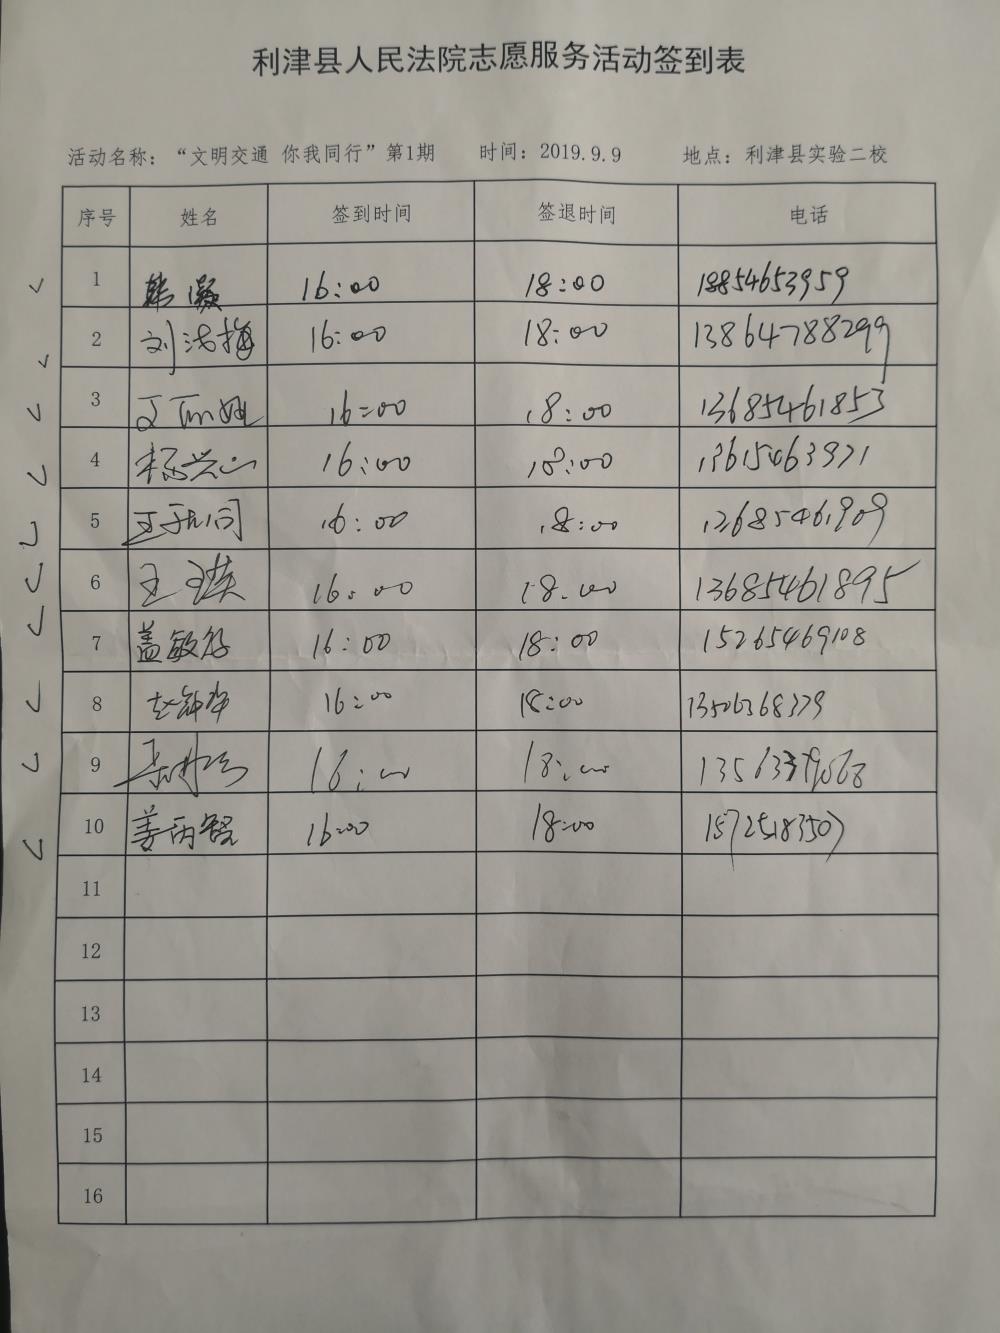 利津县人民法院志愿服务活动签到表
活动名称：“文明交通 你我同行”第1期 时间：2019.9.9 地点：利津县实验二校
序号 姓名 签到时间 签退时间 电话
1 韩凝 16:00 18:00 18854653959
2 刘洪梅 16:00 18:00 13864788299
3 16:00 18:00 13685461853
4 杨兴山 16:00 18:00 13615463971
5 16:00 18:00 12685461909
6 王瑛 16:00 18:00 13685461895
7 盖敏 16:00 18:00 15265469108
8 赵 16:00 18:00 13506368379
9 16:00 18:00
10 姜丙 16:00 18:00 15725183507
11
12
13
14
15
16